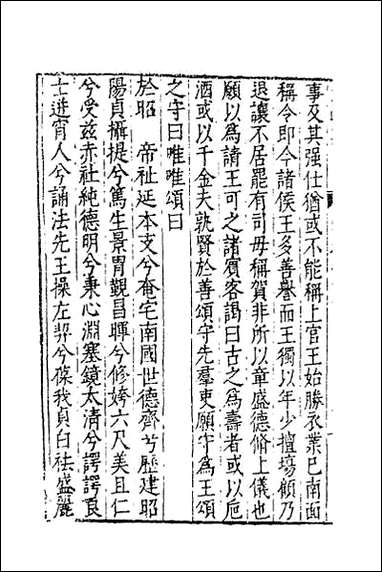 事及其强仕猶或不能稱上官王始勝衣業已南面
稱令即今諸侯王多善譽而王獨以年少擅塲顧乃
退讓不居罷有司毋稱賀非所以章盛德脩上儀也
願以為請王可之諸賓客謁曰古之為壽者或以卮
酒或以千金夫孰賢於善頌守先羣吏願守為王頌
之守曰唯唯頌曰
於昭　帝祉延本支兮奄宅南國世德齊兮歷建昭
陽貞攝提兮篤生景胄觀昌暉兮修姱六尺美且仁
兮受茲赤社純德明兮秉心淵塞鏡太清兮諤諤良
士進宵人兮誦法先王操左羿兮葆我貞白祛盛麗